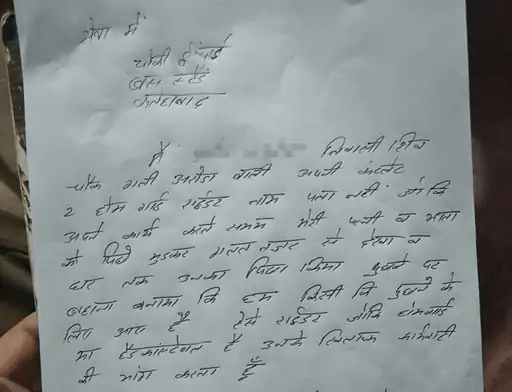 सेवा में
चौकी इंचार्ज
बस स्टैंड
फतेहाबाद
मैं निवासी शिव
चौक गली अरोडा वाली अपनी कंप्लेंट
2 होम गार्ड राईडर नाम पता नहीं जो कि
अपने कार्य करते समय मेरी पत्नी व माता
को पिछे मुडकर गलत नजर से देखा व
घर तक उनका पिछा किया पुछने पर
बहाना बनाया कि हम किसी कि पुछने के
लिए आए हैं ऐसे राईडर जोकि होमगार्ड
या हैडकांस्टेबल है उनके खिलाफ कार्यवाही
की मांग करता हूँ